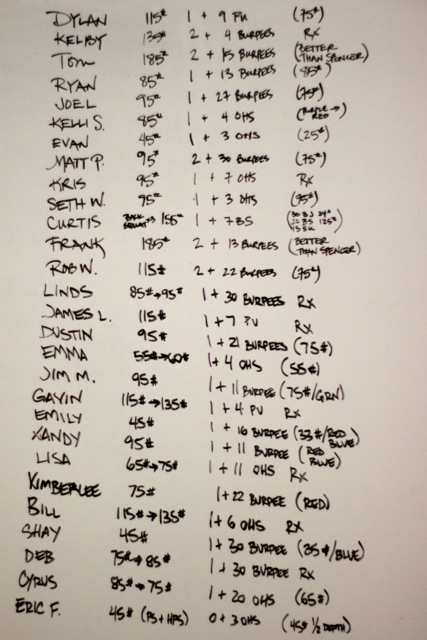 DYLAN 115# 1 + 9 PU (75#)
KELBY 135# 2 + 4 BURPEES RX
TOM 185# 2 + 15 BURPEES (BETTER THAN SPENCER)
RYAN 85# 1 + 13 BURPEES (85#)
JOEL 95# 1 + 27 BURPEES (75#)
KELLI S. 85# 1 + 4 OHS (PURPLE → RED)
EVAN 45# 1 + 3 OHS (25#)
MATT P. 95# 2 + 30 BURPEES (75#)
KRIS 95# 1 + 7 OHS RX
SETH W. 95# 1 + 3 OHS (75#)
CURTIS BACK SQUAT 155# 1 + 7 BS
FRANK 185# 2 + 13 BURPEES (BETTER THAN SPENCER)
ROB W. 115# 2 + 22 BURPEES (75#)
LINDS 85#→95# 1 + 30 BURPEES RX
JAMES L. 115# 1 + 7 PU RX
DUSTIN 95# 1 + 21 BURPEES (75#)
EMMA 55#→60# 1 + 4 OHS (55#)
JIM M. 95# 1 + 11 BURPEE (75#/GRN)
GAVIN 115#→135# 1 + 4 PU RX
EMILY 45# 1 + 16 BURPEE (33#/RED BLUE)
XANDY 95# 1 + 11 BURPEE (RED BLUE)
LISA 65#→75# 1 + 11 OHS RX
KIMBERLEE 75# 1 + 22 BURPEE (RED)
BILL 115#→135# 1 + 6 OHS RX
SHAY 45# 1 + 30 BURPEE (35#/BLUE)
DEB 75#→85# 1 + 30 BURPEE RX
CYRUS 85#→75# 1 + 20 OHS (65#)
ERIC F. 45# (PS + HPS) 0 + 3 OHS (45# 1/2 DEPTH)